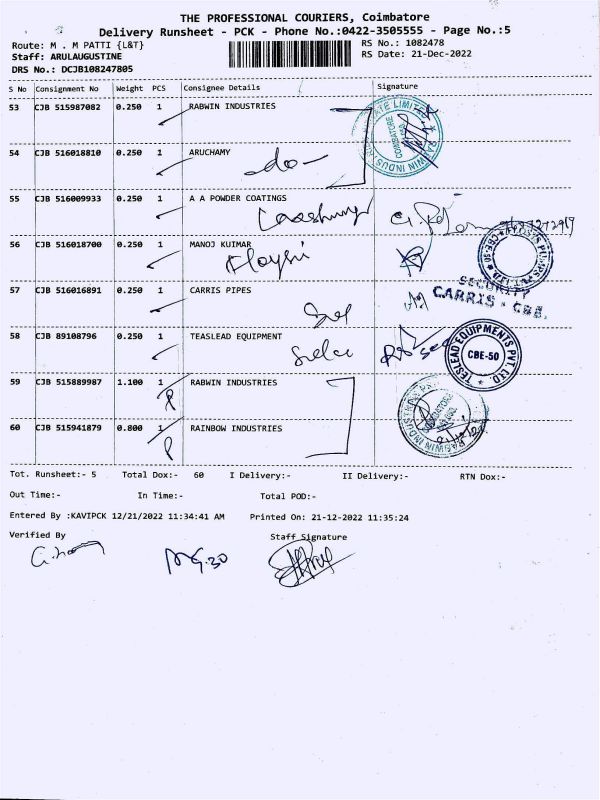 THE PROFESSIONAL COURIERS, Coimbatore
Delivery Runsheet - PCK - Phone No.:0422-3505555 - Page No.:5
Route: M . M PATTI {L&T}
RS No.: 1082478
Staff: ARULAUGUSTINE
RS Date: 21-Dec-2022
DRS No.: DCJB108247805
S No Consignment No Weight PCS Consignee Details Signature
53 CJB 515987082 0.250 1 RABWIN INDUSTRIES
54 CJB 516018810 0.250 1 ARUCHAMY
-do-
55 CJB 516009933 0.250 1 A A POWDER COATINGS
56 CJB 516018700 0.250 1 MANOJ KUIMAR
57 CJB 516016891 0.250 1 CARRIS PIPES
SECURITY
CARRIS - CBE.
58 CJB 89108796 0.250 1 TEASLEAD EQUIPMENT
TESLEAD EQUIPMENTS PVT. LTD.
CBE-50
59 CJB 515889987 1.100 1 RABWIN INDUSTRIES
60 CJB 515941879 0.800 1 RAINBOW INDUSTRIES
Tot. Runsheet:- 5 Total Dox:- 60 I Delivery:- II Delivery:- RTN Dox:-
Out Time:- In Time:- Total POD:-
Entered By :KAVIPCK 12/21/2022 11:34:41 AM Printed On: 21-12-2022 11:35:24
Verified By Staff Signature